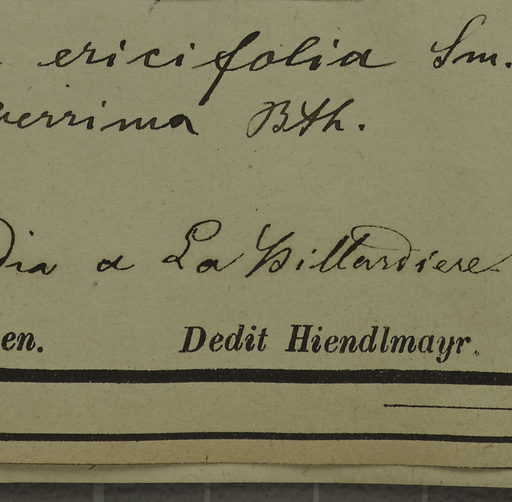 ericifolia Sm.
verrima Bth.
dia a La Billardiere.
en. Dedit Hiendlmayr.